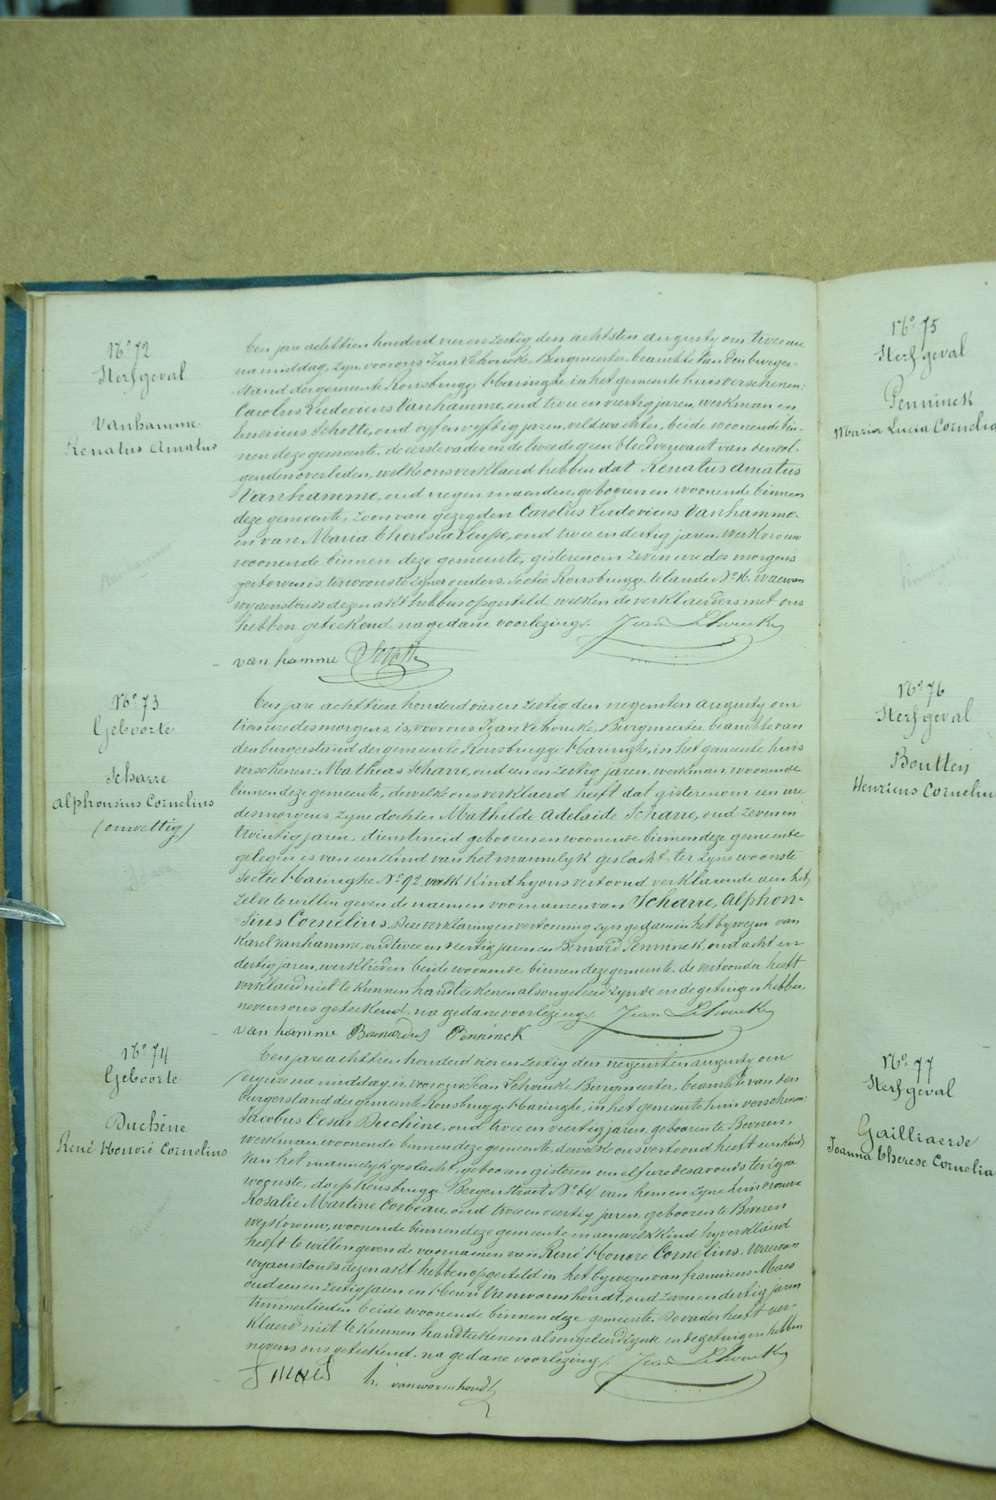 No 72
Sterfgeval
Vanhamme
Renatus Amatus
Een jare achttien honderd vier en zestig den achtsten augusty om twee ure
na middag, zyn voor ons Jean Behoucke Burgmeester beambte van den burger-
stand der gemeente Rousbrugge Haringhe in het gemeente huis verschenen:
Carolus Ludovicus Vanhamme, oud twee en veertig jaren, werkman en
Emericus Scholte, oud vyf en vyftig jaren, veldwachter, beide woonende bin-
nen deze gemeente, de eerste vader en de tweede geen bloedverwant van den vol-
genden overleden, welke ons verklaerd hebben dat Renatus Amatus
Vanhamme, oud negen maenden, gebooren en woonende binnen
deze gemeente, zoon van gezegden Carolus Ludovicus Vanhamme
en van Maria Theresia, oud twee en dertig jaren, werkvrouw
woonende binnen deze gemeente, gisteren om zeven ure des morgens
gestorven is ter woonste zyner ouders Sectie Rousbrugge te lande No 16. waer van
wy aenstonds dezen akt hebben opgesteld, welken de verklaerders met ons
hebben geteekend, na gedane voorlezing.
van hamme
No 73
Geboorte
Scharre
Alphonsius Cornelius
(onwettig)
Een jare achttien honderd vier en zestig den negensten augusty om
tien ure des morgens is, voor ons Jean Behoucke, Burgmeester beambte van
den burgerstand der gemeente Rousbrugge Haringhe, in het gemeente huis
verschenen: Matheas Scharre, oud een en zestig jaren, werkman woonende
binnen deze gemeente, dewelke ons verklaerd heeft dat gisteren om een ure
des morgens, zyne dochter Mathilde Adelaide Scharre, oud zeven en
twintig jaren, dienstmeid gebooren en woonende binnen deze gemeente
gelegen is van een kind van het mannelyk geslacht, ter zyne woonste
Sectie Haringhe No 92 welk kind hy ons vertoond verklarende aen het
zelve te willen geven de namen voornamen van Scharre, Alphon-
sius Cornelius. Deze verklaring en vertooning zyn gedaen in het bywezen van
Karel Vanhamme, oud twee en veertig jaren en Bernard Penninck, oud acht en
dertig jaren, werklieden beide woonende binnen deze gemeente. de vertooner heeft
verklaerd niet te kunnen handteekenen als ongeleerd zynde en de getuigen hebben
nevens ons geteekend, na gedane voorlezing.
van hamme Bernardus Penninck
No 74
Geboorte
Duchêne
René Honoré Cornelius
Een jare achttien honderd vier en zestig den negensten augusty om
vyf ure na middag, is voor ons Jean Behoucke Burgmeester, beambte van den
burgerstand der gemeente Rousbrugge Haringhe, in het gemeente huis verschenen:
Jacobus Cesar Duchêne, oud twee en veertig jaren, gebooren te Beveren,
werkman, woonende binnen deze gemeente, dewelke ons vertoond heeft een kind
van het mannelyk geslacht, gebooren gisteren om elf ure des avonds ter zyne
woonste, dorp Rousbrugge Bergen Straet No 64 van hem en zyne huisvrouw
Rosalie Martine Corbeau, oud twee en veertig jaren, gebooren te Beveren
werkvrouw, woonende binnen deze gemeente, aen welk kind hy verklaerd
heeft te willen geven de voornamen van René Honoré Cornelius. Waer van
wy aenstonds dezen akt hebben opgesteld in het bywezen van franciscus Maes
oud een en zestig jaren en Henri Vanwormhoudt, oud zeven en dertig jaren
timmerlieden, beide woonende binnen deze gemeente. De vader heeft ver-
klaerd niet te kunnen handteekenen als ongeleerd zynde en de getuigen hebben
nevens ons geteekend, na gedane voorlezing.
f. maes h. vanwormhoudt
No 75
Sterfgeval
Penninck
Maria Lucia Cornelia
No 76
Sterfgeval
Boutten
Henricus Corneliu
No 77
Sterfgeval
Gailliaerde
Joanna Therese Cornelia